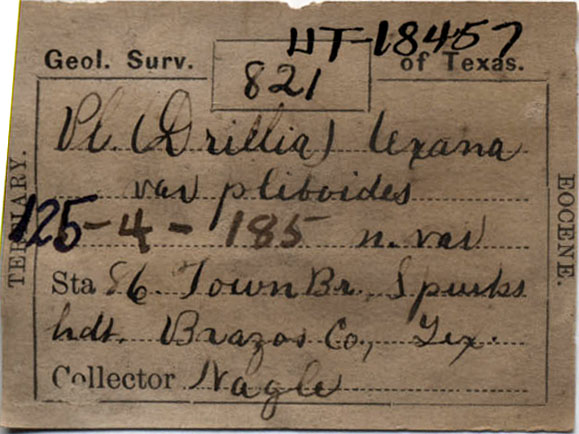 UT-18457
Geol. Surv. 821 of Texas.
Pl. (Drillia) texana
var pliboides
125-4-185 n. var
Sta 86. Town Br. Spurks
hdt. Brazos Co., Tex.
Collector Nagle
TERTIARY.
EOCENE.